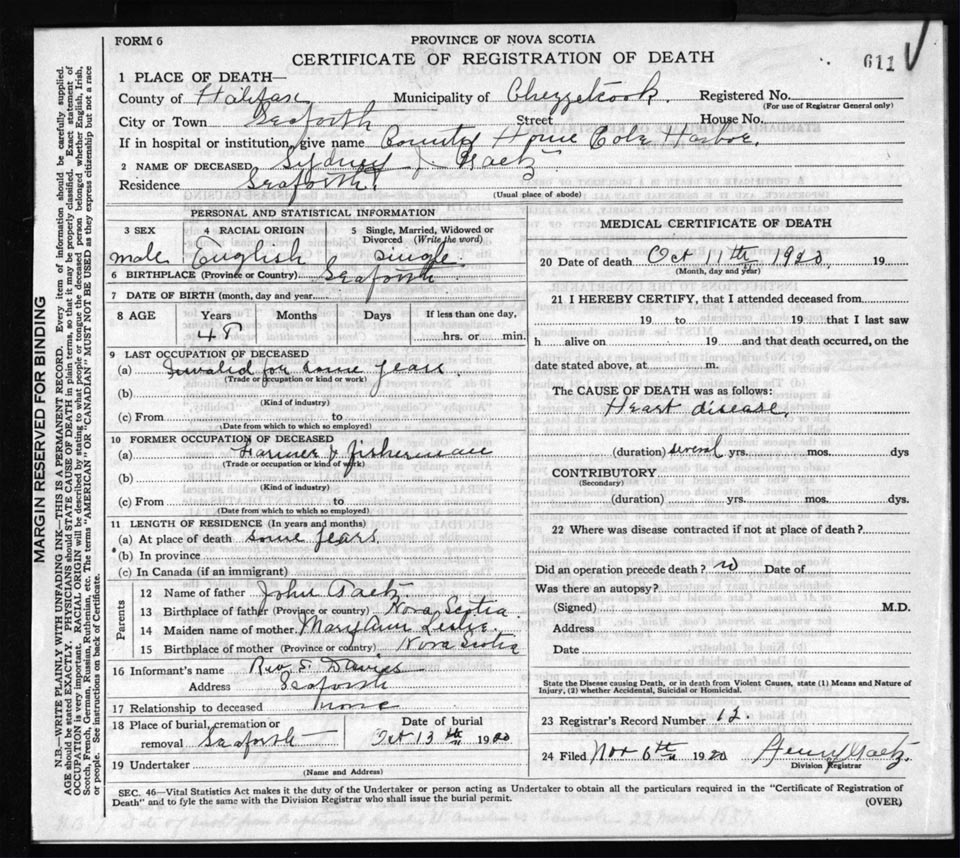 FORM 6
PROVINCE OF NOVA SCOTIA
CERTIFICATE OF REGISTRATION OF DEATH
611
1 PLACE OF DEATH—
County of Halifax Municipality of Chezzetcook. Registered No.
(For use of Registrar General only)
City or Town Seaforth Street House No.
If in hospital or institution, give name County Home Cole Harbor.
2 NAME OF DECEASED Sydney J Gaetz
Residence Seaforth.
(Usual place of abode)
PERSONAL AND STATISTICAL INFORMATION
3 SEX 4 RACIAL ORIGIN 5 Single, Married, Widowed or Divorced (Write the word)
male English single
6 BIRTHPLACE (Province or Country) Seaforth
7 DATE OF BIRTH (month, day and year)
8 AGE Years Months Days If less than one day,
hrs. or min.
9 LAST OCCUPATION OF DECEASED
(a) Invalid for some years.
(Trade or occupation or kind or work)
(b)
(Kind of industry)
(c) From to
(Date from which to which so employed)
10 FORMER OCCUPATION OF DECEASED
(a) Farmer & fisherman
(Trade or occupation or kind of work)
(b)
(Kind of industry)
(c) From to
(Date from which to which so employed)
11 LENGTH OF RESIDENCE (In years and months)
(a) At place of death some years
(b) In province
(c) In Canada (if an immigrant)
Parents
12 Name of father John Gaetz
13 Birthplace of father (Province or country) Nova Scotia
14 Maiden name of mother Mary Ann Leslie.
15 Birthplace of mother (Province or country) Nova Scotia
16 Informant's name Rev S. Davies
Address Seaforth
17 Relationship to deceased none
18 Place of burial, cremation or removal Seaforth
Date of burial
Oct 13th 1920
19 Undertaker
(Name and Address)
MEDICAL CERTIFICATE OF DEATH
20 Date of death Oct 11th 1920 19
(Month, day and year)
21 I HEREBY CERTIFY, that I attended deceased from
19 to 19 that I last saw
h alive on 19 and that death occurred, on the
date stated above, at m.
The CAUSE OF DEATH was as follows:
Heart disease,
(duration) several yrs. mos. dys
CONTRIBUTORY
(Secondary)
(duration) yrs. mos. dys.
22 Where was disease contracted if not at place of death?
Did an operation precede death? no Date of
Was there an autopsy?
(Signed) M.D.
Address
Date
State the Disease causing Death, or in death from Violent Causes, state (1) Means and Nature of
Injury, (2) whether Accidental, Suicidal or Homicidal.
23 Registrar's Record Number 12.
24 Filed Nov 6th 1920 Henry Gaetz
Division Registrar
SEC. 46—Vital Statistics Act makes it the duty of the Undertaker or person acting as Undertaker to obtain all the particulars required in the "Certificate of Registration of
Death" and to fyle the same with the Division Registrar who shall issue the burial permit.
(OVER)
MARGIN RESERVED FOR BINDING
N.B.—WRITE PLAINLY WITH UNFADING INK—THIS IS A PERMANENT RECORD. Every item of information should be carefully supplied.
AGE should be stated EXACTLY. PHYSICIANS should STATE CAUSE OF DEATH in plain terms, so that it may be properly classified. Exact statement of
OCCUPATION is very important. RACIAL ORIGIN will be described by stating to what people or tongue the deceased person belonged whether English, Irish,
Scotch, French, German, Russian, Ruthenian, etc. The terms "AMERICAN" OR "CANADIAN" MUST NOT BE USED as they express citizenship but not a race
or people. See instructions on back of Certificate.